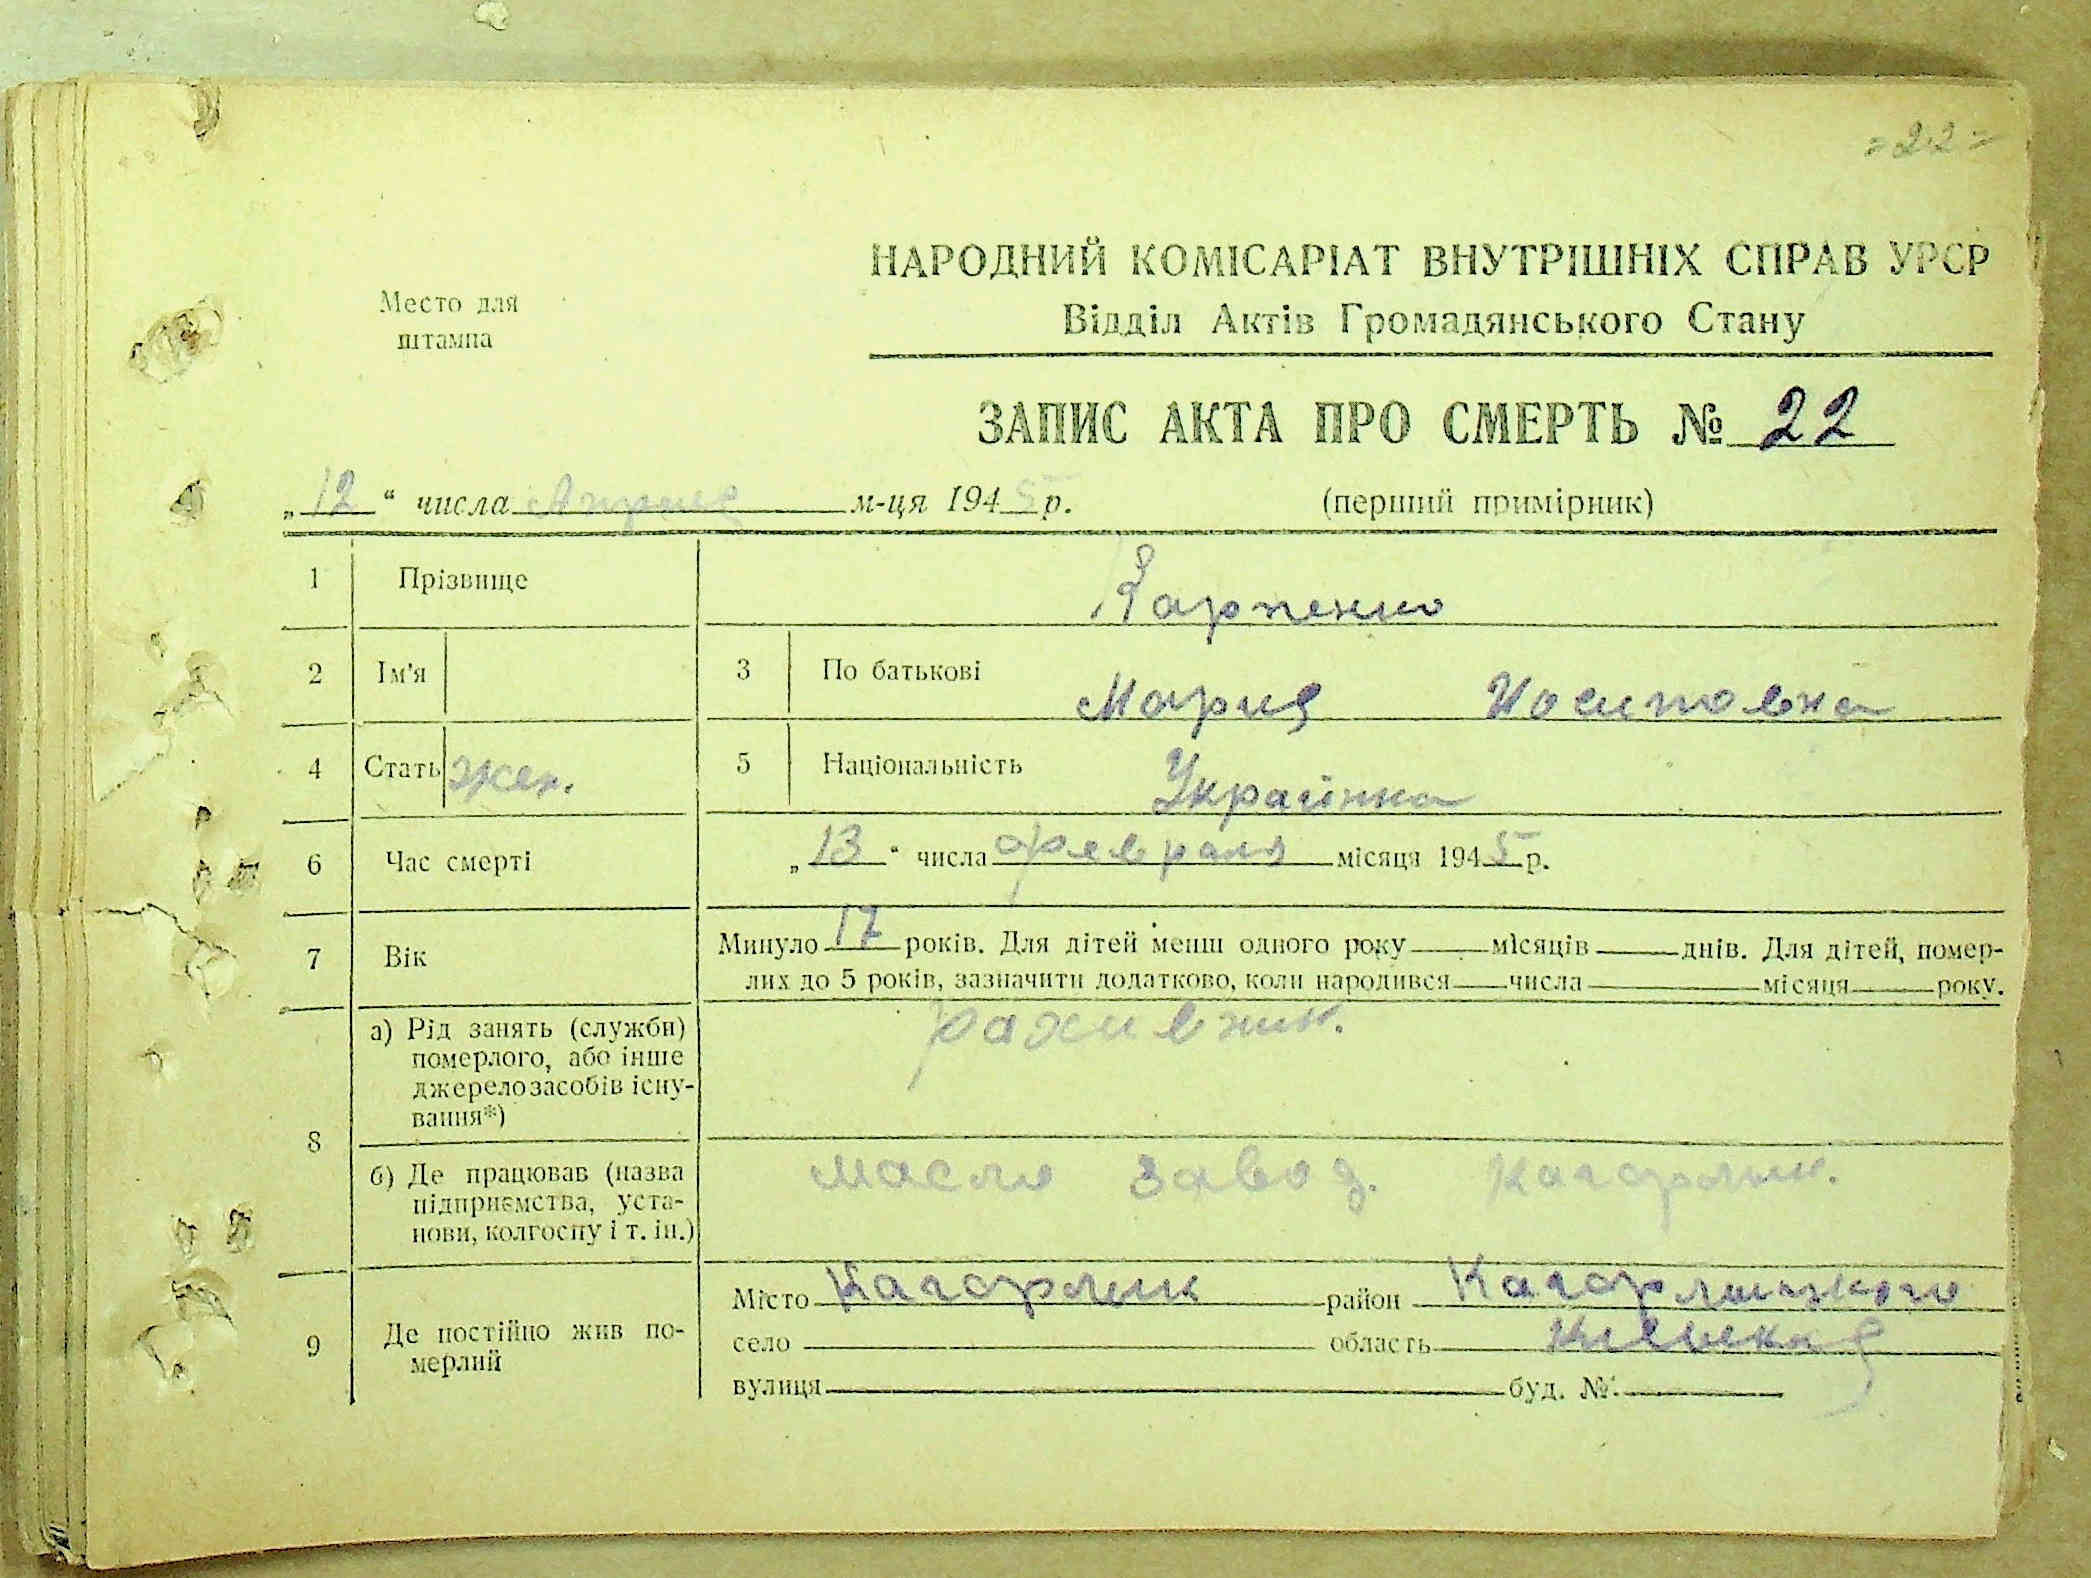 = 22 =
НАРОДНИЙ КОМІСАРІАТ ВНУТРІШНІХ СПРАВ УРСР
Место для штампа
Відділ Актів Громадянського Стану
ЗАПИС АКТА ПРО СМЕРТЬ № 22
„12“ числа Апреля м-ця 1945 р. (перший примірник)
1 Прізвище Карпенко
2 Ім'я 3 По батькові Мария Иосиповна
4 Стать жен. 5 Національність Українка
6 Час смерті „13“ числа февраля місяця 1945 р.
7 Вік Минуло 17 років. Для дітей менш одного року місяців днів. Для дітей, помер-
лих до 5 років, зазначити додатково, коли народився числа місяця року.
8 а) Рід занять (служби)
померлого, або інше
джерело засобів існу-
вання*)
б) Де працював (назва
підприємства, уста-
нови, колгоспу і т. ін.)
масло завод. Кагарлик.
9 Де постійно жив по-
мерлий
Місто Кагарлик район Кагарлицкого
село область Киевская
вулиця буд. №